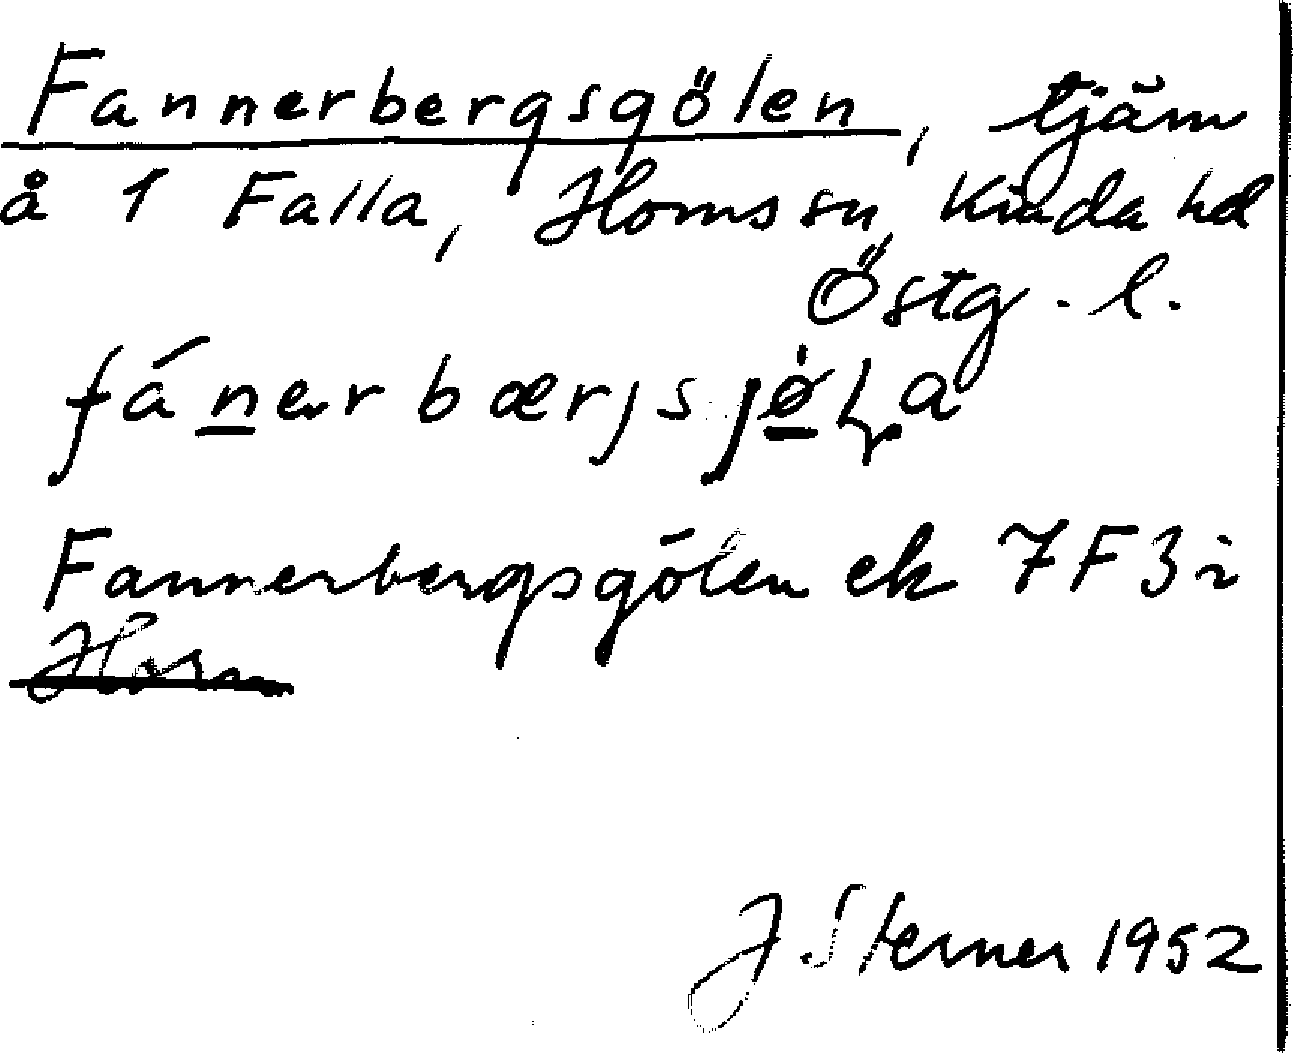 Fannerbergsgölen, tjärn
å 1 Falla, Horns sn, Kinda hd
Östg. l.
fánerbærjsjø̀ɭa
Fannerbergsgölen ek 7F3i
Horn
J Sterner 1952